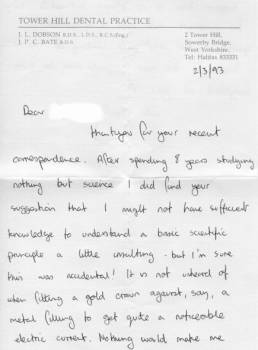 TOWER HILL DENTAL PRACTICE
J. L. DOBSON B.D.S., L.D.S., R.C.S.(Eng.)
J. P. C. BATE B.D.S.
2 Tower Hill,
Sowerby Bridge,
West Yorkshire.
Tel: Halifax 833331
2/3/93
Dear
Thankyou for your recent
correspondence. After spending 8 years studying
nothing but science I did find your
suggestion that I might not have sufficient
knowledge to understand a basic scientific
principle a little insulting - but I'm sure
this was accidental! It is not unheard of
when fitting a gold crown against, say, a
metal filling to get quite a noticeable
electric current. Nothing would make me